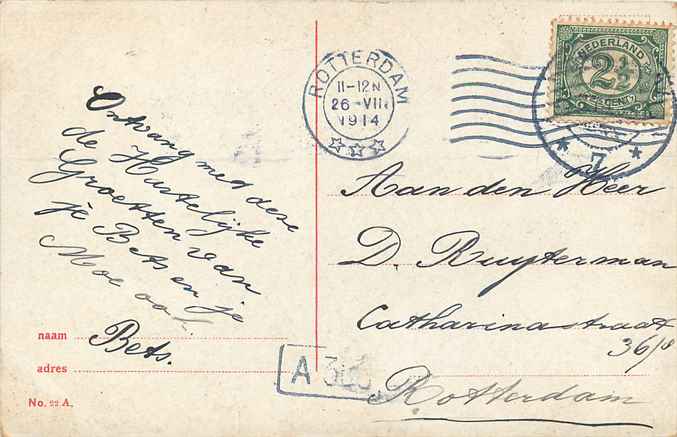 Ontvang met deze
de Hartelijke
Groetten van
je Bets en je
Moe ook.
Bets.
naam
adres
No. 22 A.
ROTTERDAM
11-12N
26 VII
1914
NEDERLAND
2½
CENT
7
Aan den Heer
D. Ruijterman
Catharinastraat
36
Rotterdam
A